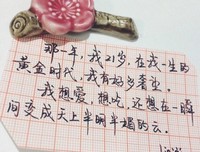 那一年，我21岁，在我一生的
黄金时代，我有好多奢望。
我想爱，想吃，还想在一瞬
间变成天上半明半暗的云。